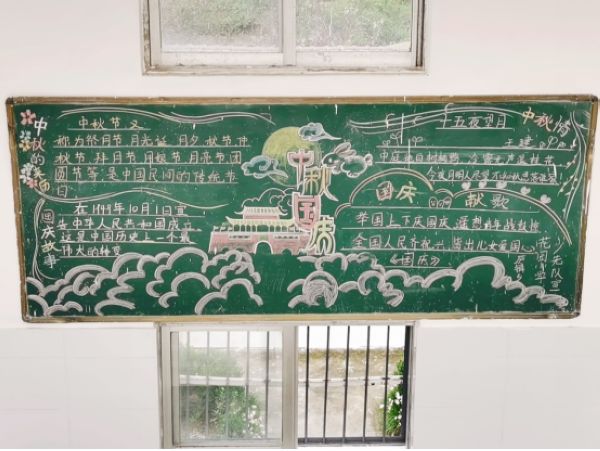 中秋的美
中秋节又
称为祭月节 月光诞 月夕 秋节 仲
秋节 拜月节 月娘节 月亮节 团
圆节等 是中国民间的传统节
日
国庆故事
在1949年10月1日宣
中华人民共和国成立
这是中国历史上一个最
伟大的转变
中秋
国庆
中秋情
十五夜望月
王建
中庭地白树栖鸦 冷露无声湿桂花
今夜月明人尽望 不知秋思落谁家
国庆 献歌
举国上下庆国庆
全国人民齐祝兴 儿女爱国心
《国庆》
少先队宣
花园小学